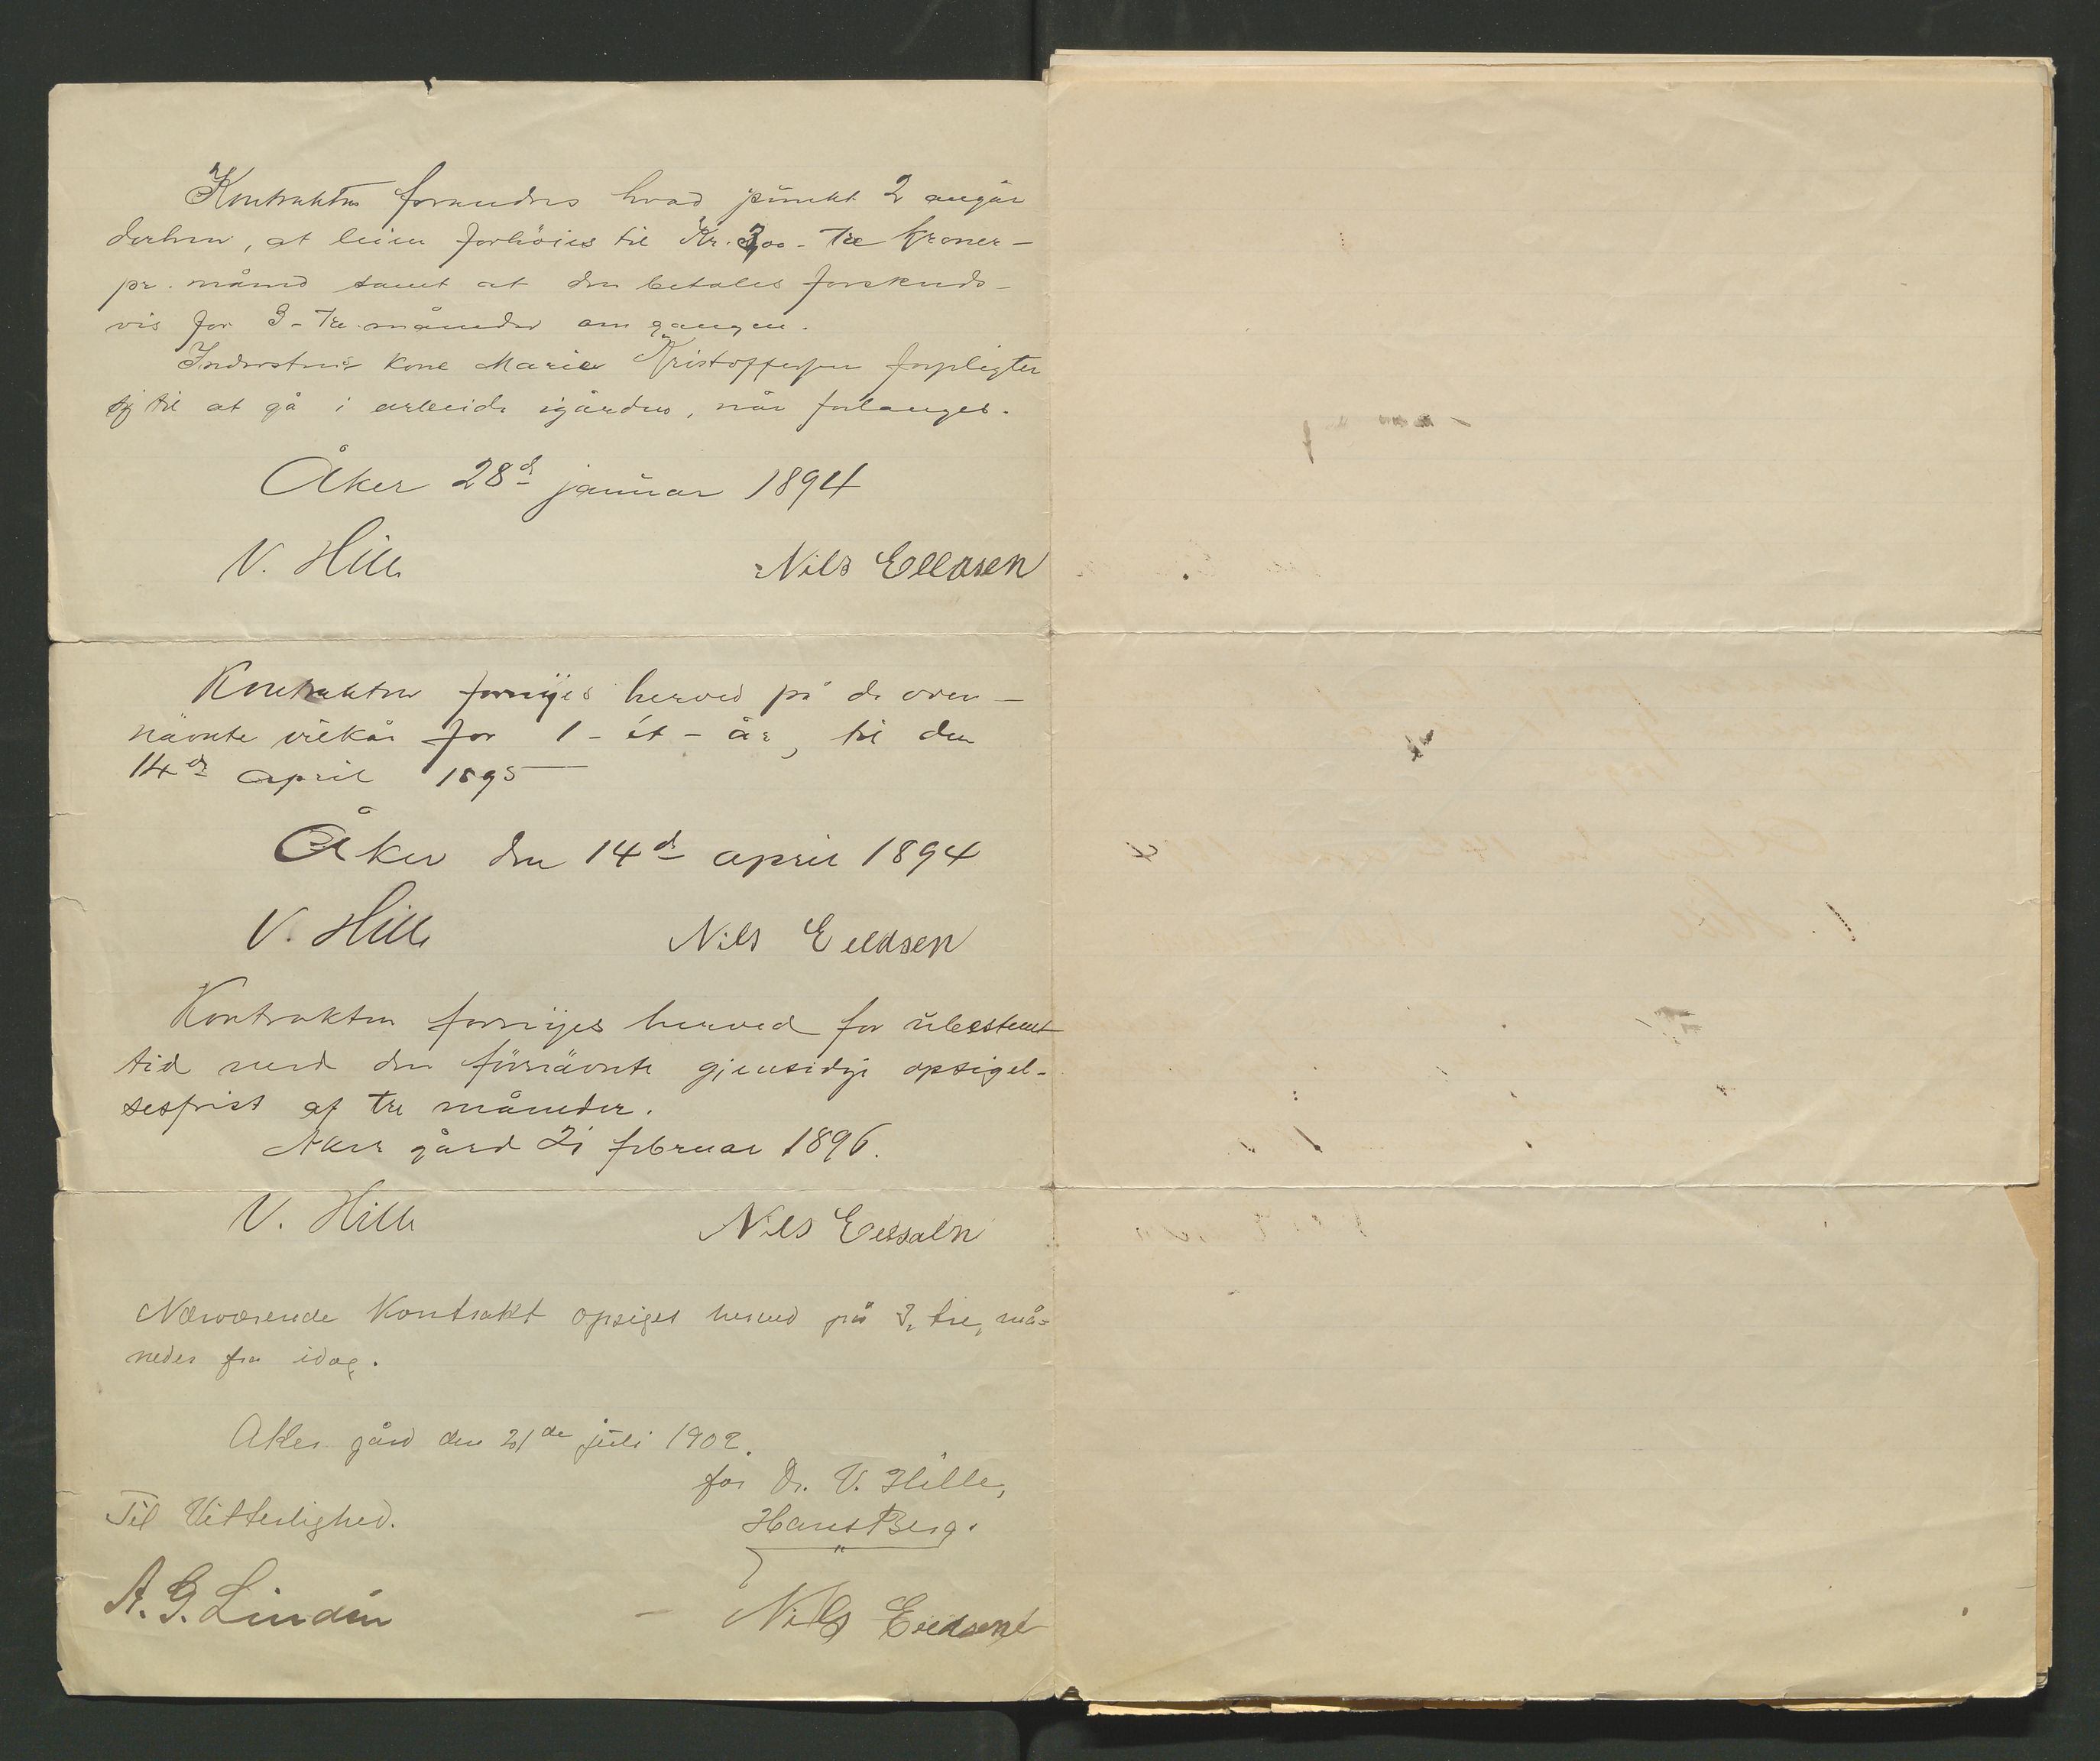 Kontrakten forandres hvad punkt 2 angår
derhen, at leien forhöies til Kr. 3,00 - Tre kroner -
pr. måned samt at den betales forskuds-
vis for 3 - Tre måneder om gangen.
Inderstens kone Marie Kristoffersen forpligter
sig til at gå i arbeide i gården, når forlanges.
Åker 28de januar 1894
V. Hille
Nils Ellasen
Kontrakten fornyes herved på de oven-
nävnte vilkår for 1 - ét - år, til den
14de april 1895
Åker den 14de april 1894
V. Hille
Nils Ellasen
Kontrakten fornyes herved for ubestemt
tid med den förnävnte gjensidige opsigel-
sesfrist af tre måneder.
Aker gård 21 februar 1896.
V. Hille
Nils
Nærværende Kontrakt opsiges herved på 3, tre, må-
neder fra idag.
Aker gård den 21de juli 1902.
for Dr. V. Hille,
Hans Berg.
Til Vitterlighed.
A. G. Lindén
Nils